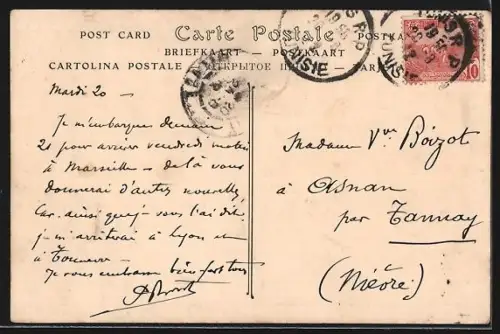 POST CARD Carte Postale POSTKA
BRIEFKAART — POSTKAART
CARTOLINA POSTALE
TUNISIE
R P
10
Mardi 20 —
Je m'embarque demain
21 pour arriver vendredi matin
à Marseille — de là vous
donnerai d'autres nouvelles,
Car, ainsi que je vous l'ai dit,
je m'arrêterai à Lyon et
à Tonnerre —
Je vous embrasse bien fort tous
Madame Vve Boizot
à Asnan
par Tannay
(Nièvre)